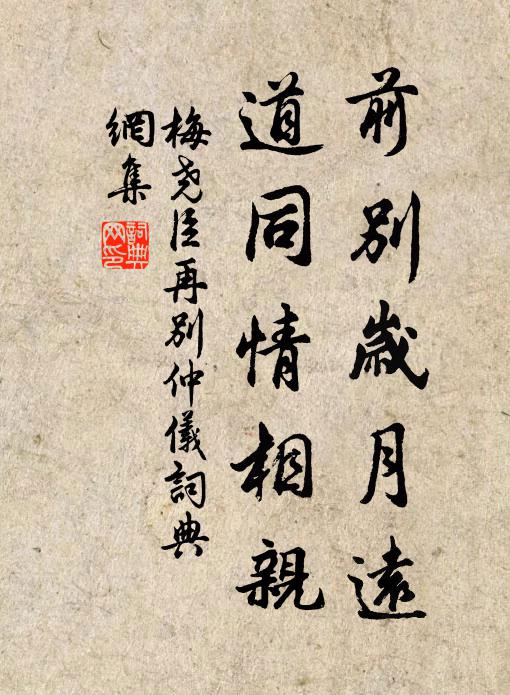 前別歲月遠
道同情相親
梅堯臣再別仲儀詞典
網集
詞典
网印